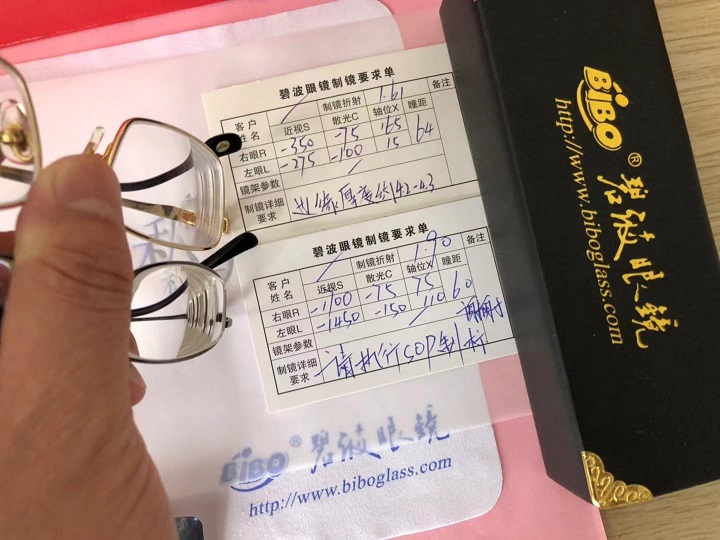 碧波眼镜制镜要求单
客户姓名 制镜折射 1.61 备注
近视S 散光C 轴位X 瞳距
右眼R -350 -75 165 64
左眼L -275 -100 15
镜架参数
制镜详细要求 边缘厚度约4.2-4.3
碧波眼镜制镜要求单
客户姓名 制镜折射 1.90 备注
近视S 散光C 轴位X 瞳距
右眼R -1100 -75 75 60
左眼L -1450 -150 110
镜架参数 谢谢
制镜详细要求 请执行SOP
BiBO® 碧波眼镜
http://www.biboglass.com
BiBO® 碧波眼镜
http://www.biboglass.com